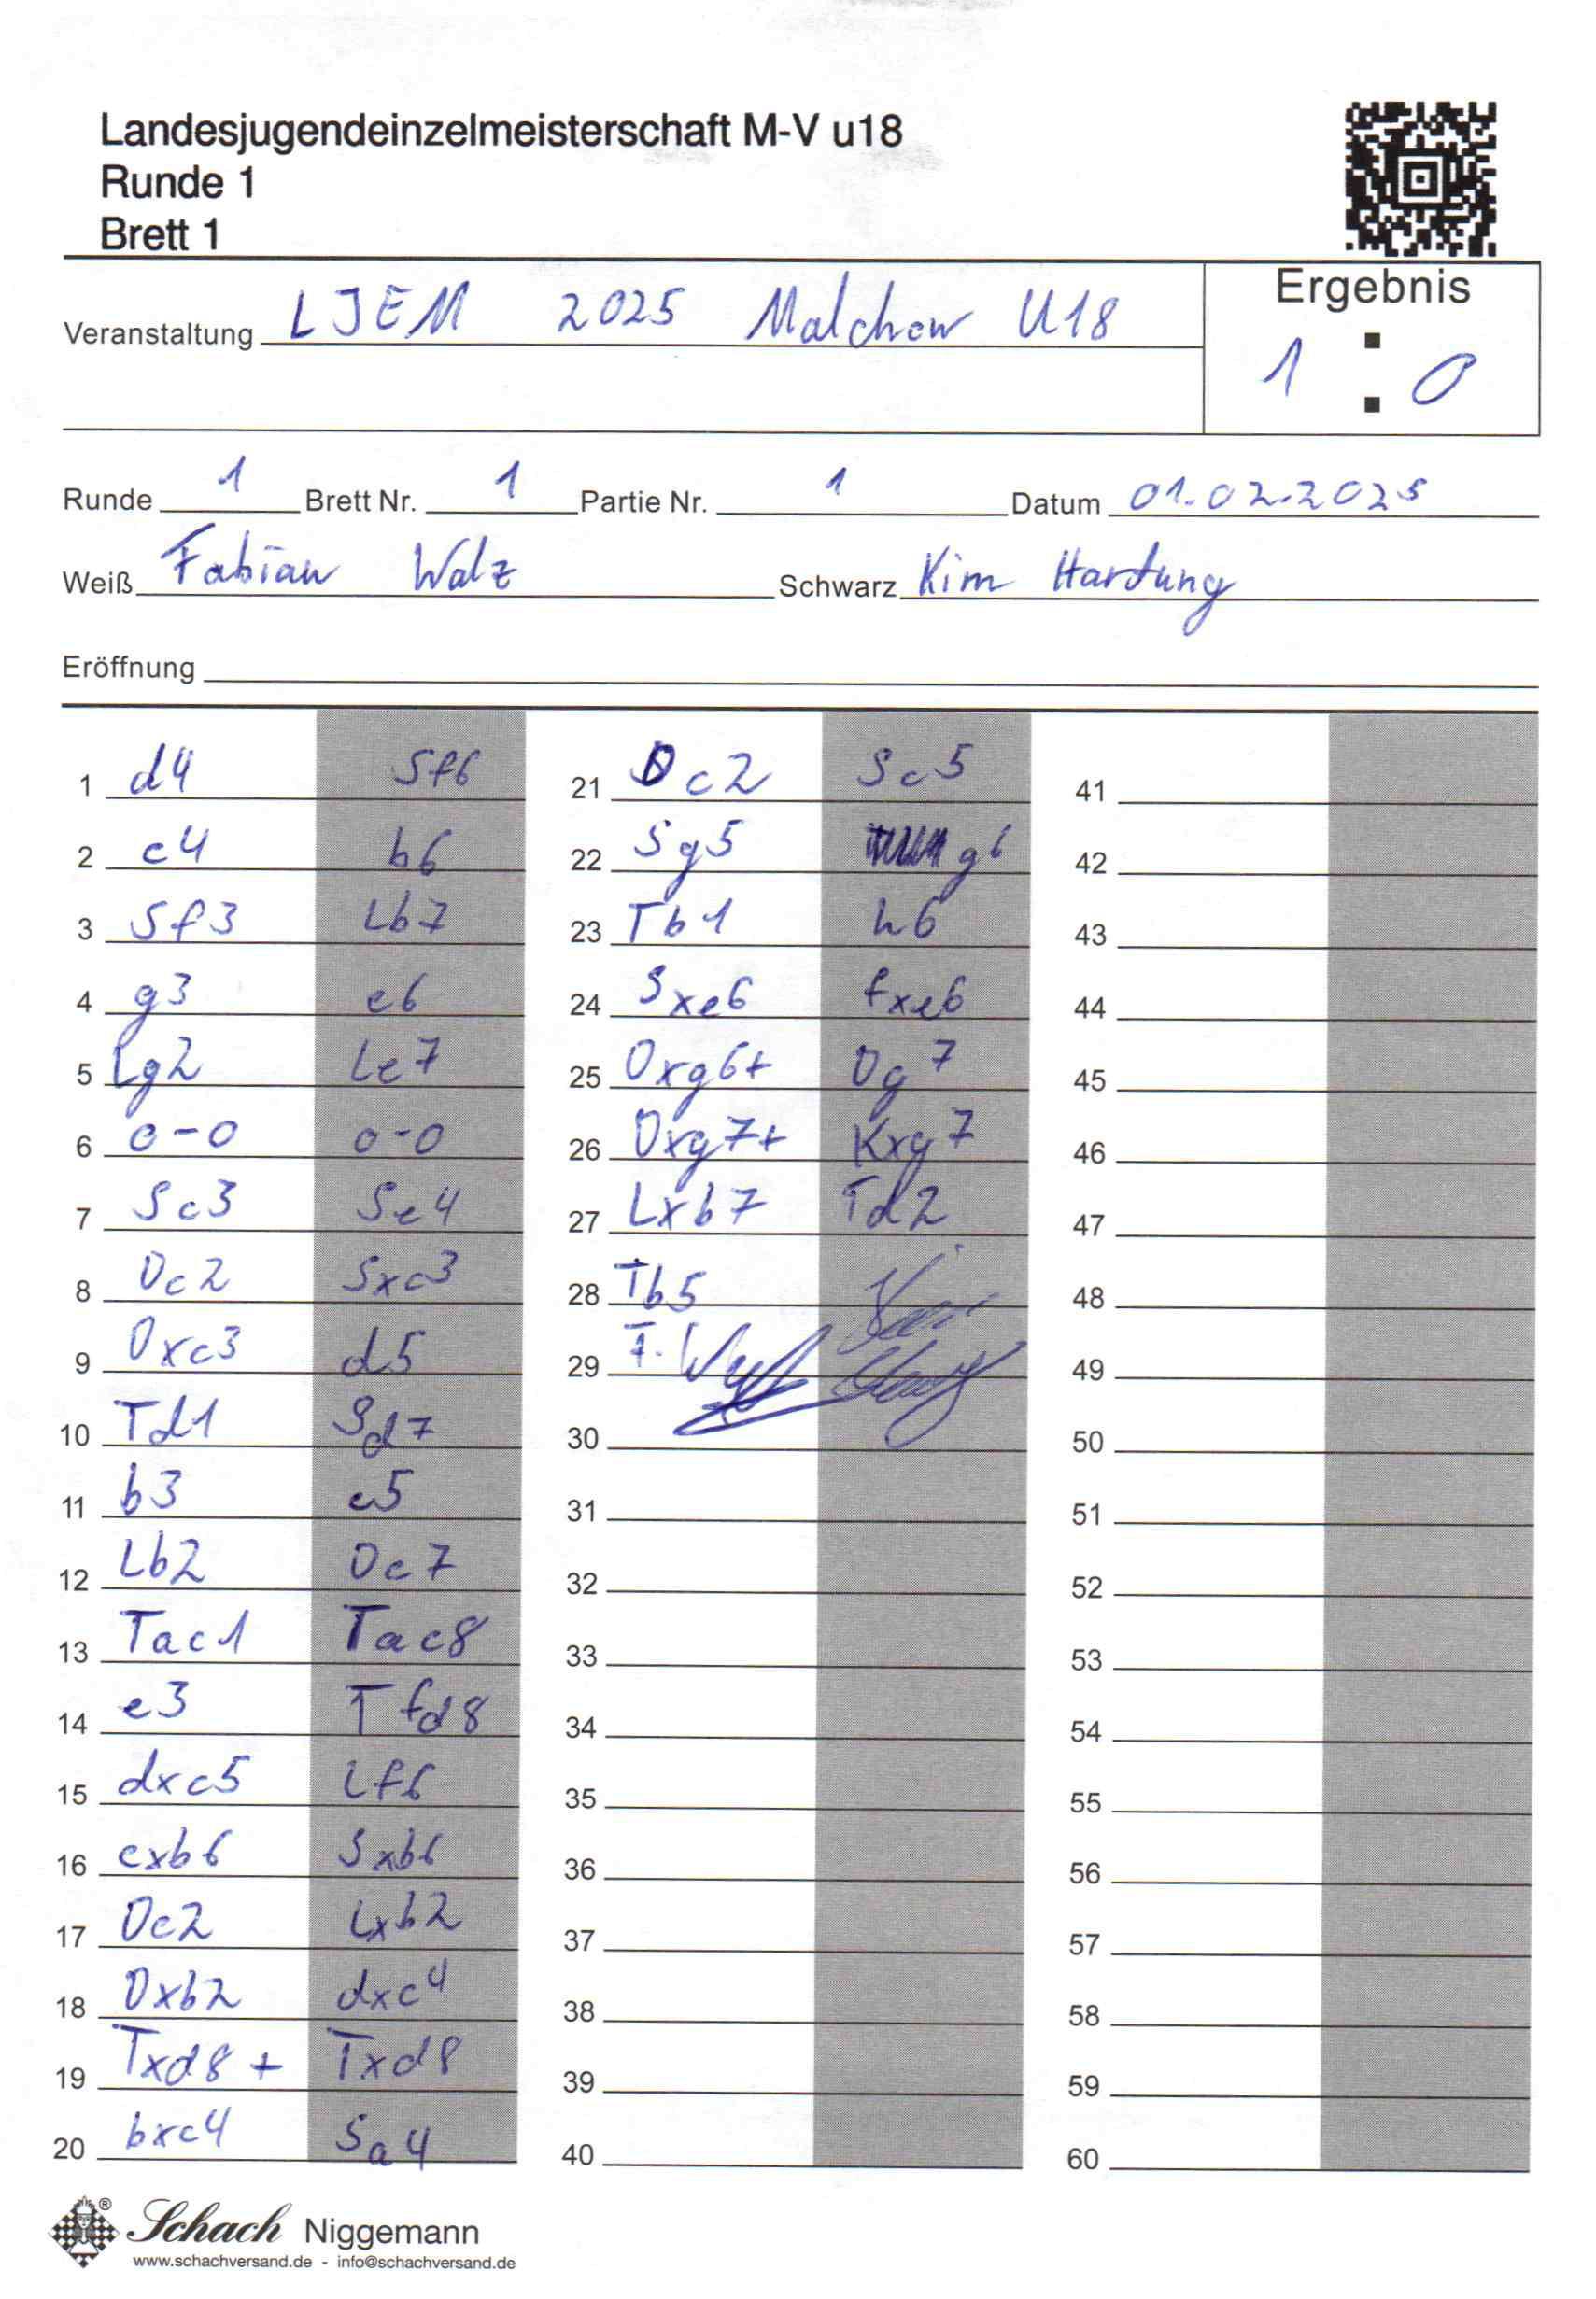 Landesjugendeinzelmeisterschaft M-V u18
Runde 1
Brett 1
Veranstaltung LJEM 2025 Malchow U18
Ergebnis
1 : 0
Runde 1 Brett Nr. 1 Partie Nr. 1 Datum 01.02.2025
Weiß Fabian Walz Schwarz Kim Hartung
Eröffnung
1 d4 Sf6
2 c4 b6
3 Sf3 Lb7
4 g3 e6
5 Lg2 Le7
6 0-0 0-0
7 Sc3 Se4
8 Dc2 Sxc3
9 Dxc3 d5
10 Td1 Sd7
11 b3 c5
12 Lb2 Dc7
13 Tac1 Tac8
14 e3 Tfd8
15 dxc5 Lf6
16 cxb6 Sxb6
17 Dc2 Lxb2
18 Dxb2 dxc4
19 Txd8+ Txd8
20 bxc4 Sa4
21 Dc2 Sc5
22 Sg5 g6
23 Tb1 h6
24 Sxe6 fxe6
25 Dxg6+ Dg7
26 Dxg7+ Kxg7
27 Lxb7 Td2
28 Tb5
29 F.
30
31
32
33
34
35
36
37
38
39
40
41
42
43
44
45
46
47
48
49
50
51
52
53
54
55
56
57
58
59
60
® Schach Niggemann
www.schachversand.de - info@schachversand.de